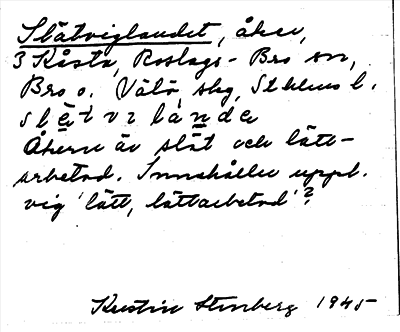 Slätviglandet, åker,
3 Kårsta, Roslags-Bro sn,
Bro o. Vätö skg, Sthlms l.
slètvɩlànde
Åkern är slät och lätt-
arbetad. Innehåller uppl.
vig 'lätt, lättarbetad'?
Kerstin Stenberg 1945